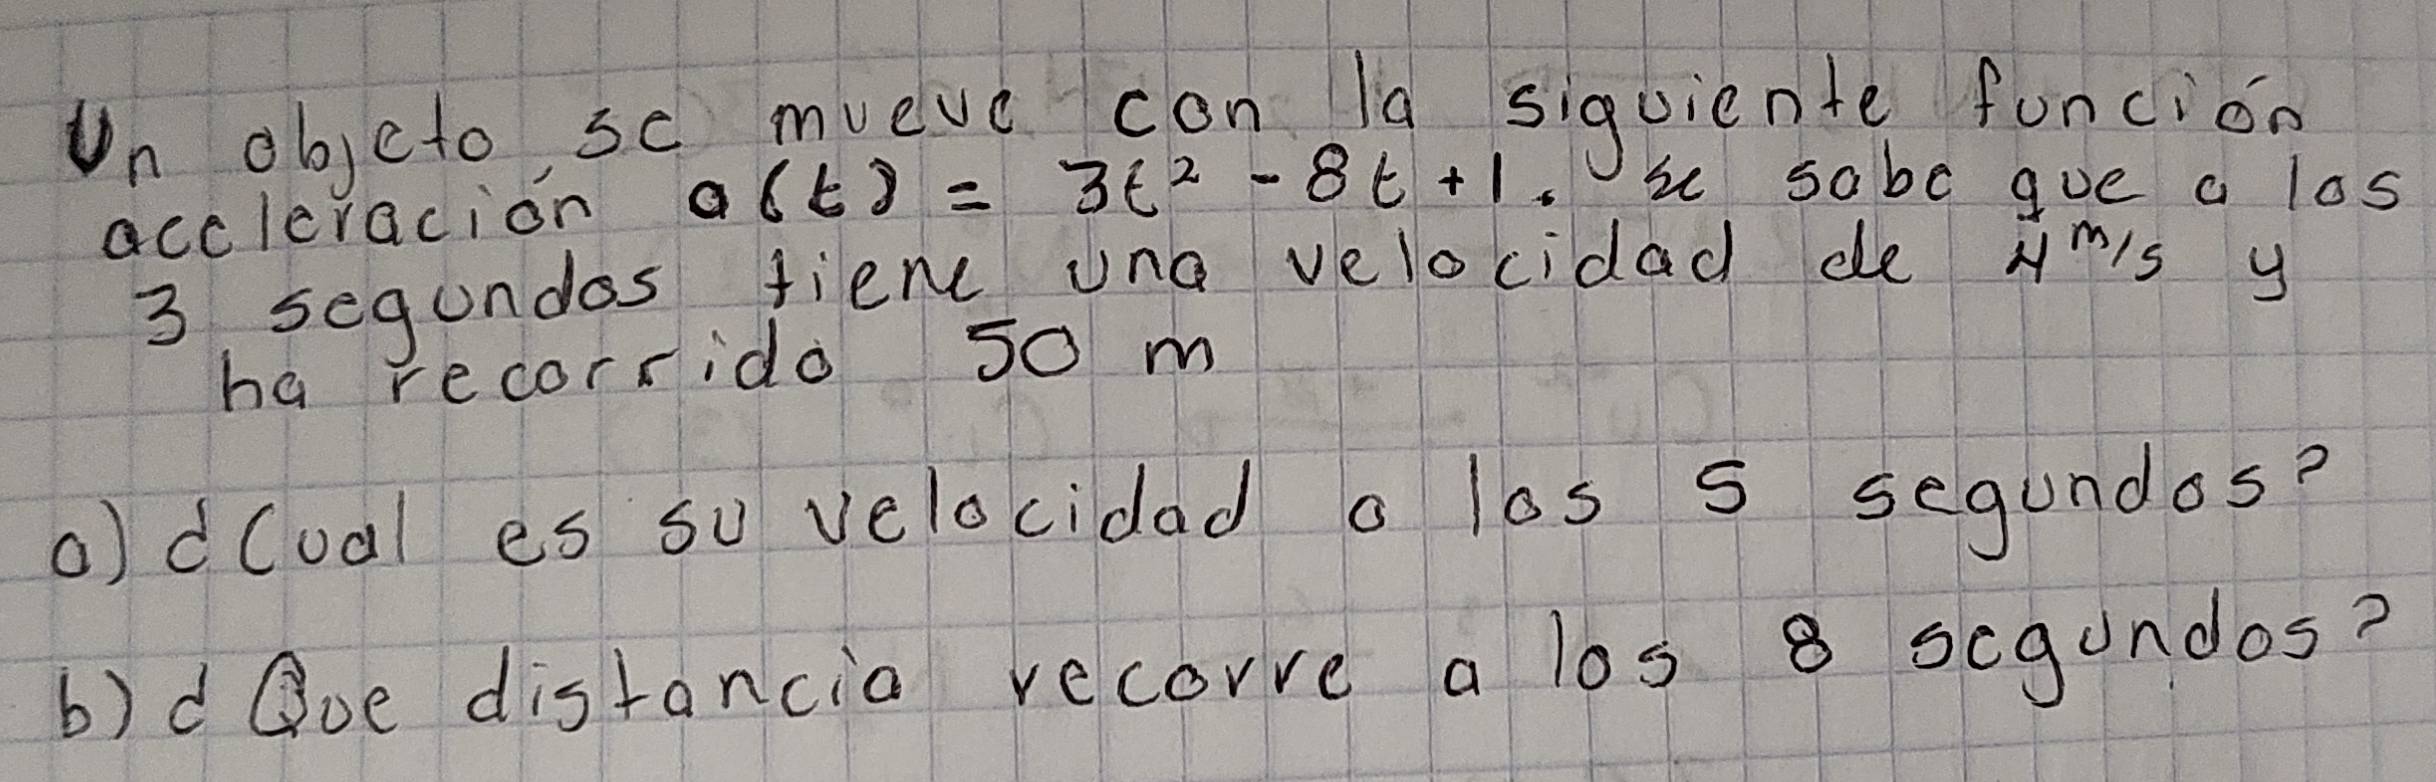 Un objeto se mueve con la siguiente función
aceleración a(t) = 3t² - 8t + 1. se sabe que a los
3 segundos tiene una velocidad de 4 m/s y
ha recorrido 50 m
a) ¿Cual es su velocidad a los 5 segundos?
b) ¿Que distancia recorre a los 8 segundos?